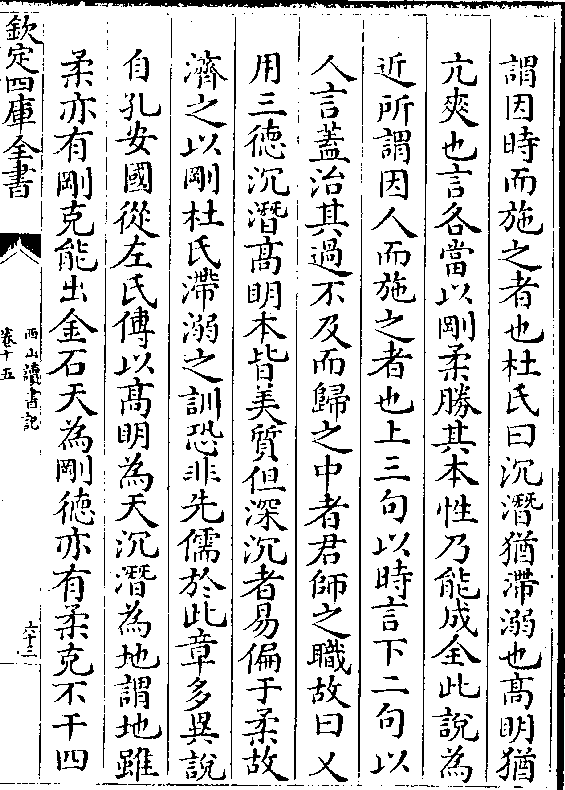 謂因時而施之者也杜氏曰沉潛猶滯溺也高明猶
亢爽也言各當以剛柔勝其本性乃能成全此說為
近所謂因人而施之者也上三句以時言下二句以
人言蓋治其過不及而歸之中者君師之職故曰乂
用三德沉潛高明本皆美質但深沉者易偏于柔故
濟之以剛杜氏滯溺之訓恐非先儒於此章多異說
自孔安國從左氏傳以高明為天沉潛為地謂地雖
柔亦有剛克能出金石天為剛德亦有柔克不干四
欽定四庫全書
西山讀書記
卷十五
六十三